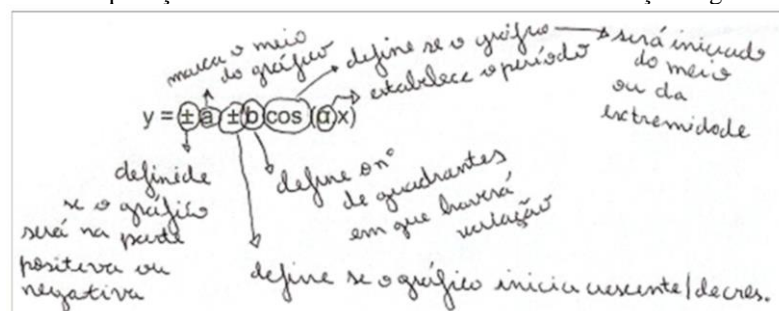 marca o meio
do gráfico
define se o gráfico
será iniciado
do meio
ou da
extremidade
estabelece o período
y = ± a ± b cos (α x)
definide
se o gráfico
será na parte
positiva ou
negativa
define o nº
de quadrantes
em que haverá
variação
define se o gráfico inicia crescente/decres.